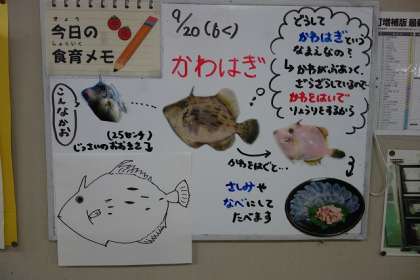 きょう
今日の
しょくいく
食育メモ
9/20(もく)
かわはぎ
どうして
かわはぎという
なまえなの？
↳かわがぶあつく、
ざらざらしているので
かわをはいで
りょうりをするから
こんなかお
(25センチ)
じっさいのおおきさ
かわをはぐと…
さしみや
なべにして
たべます